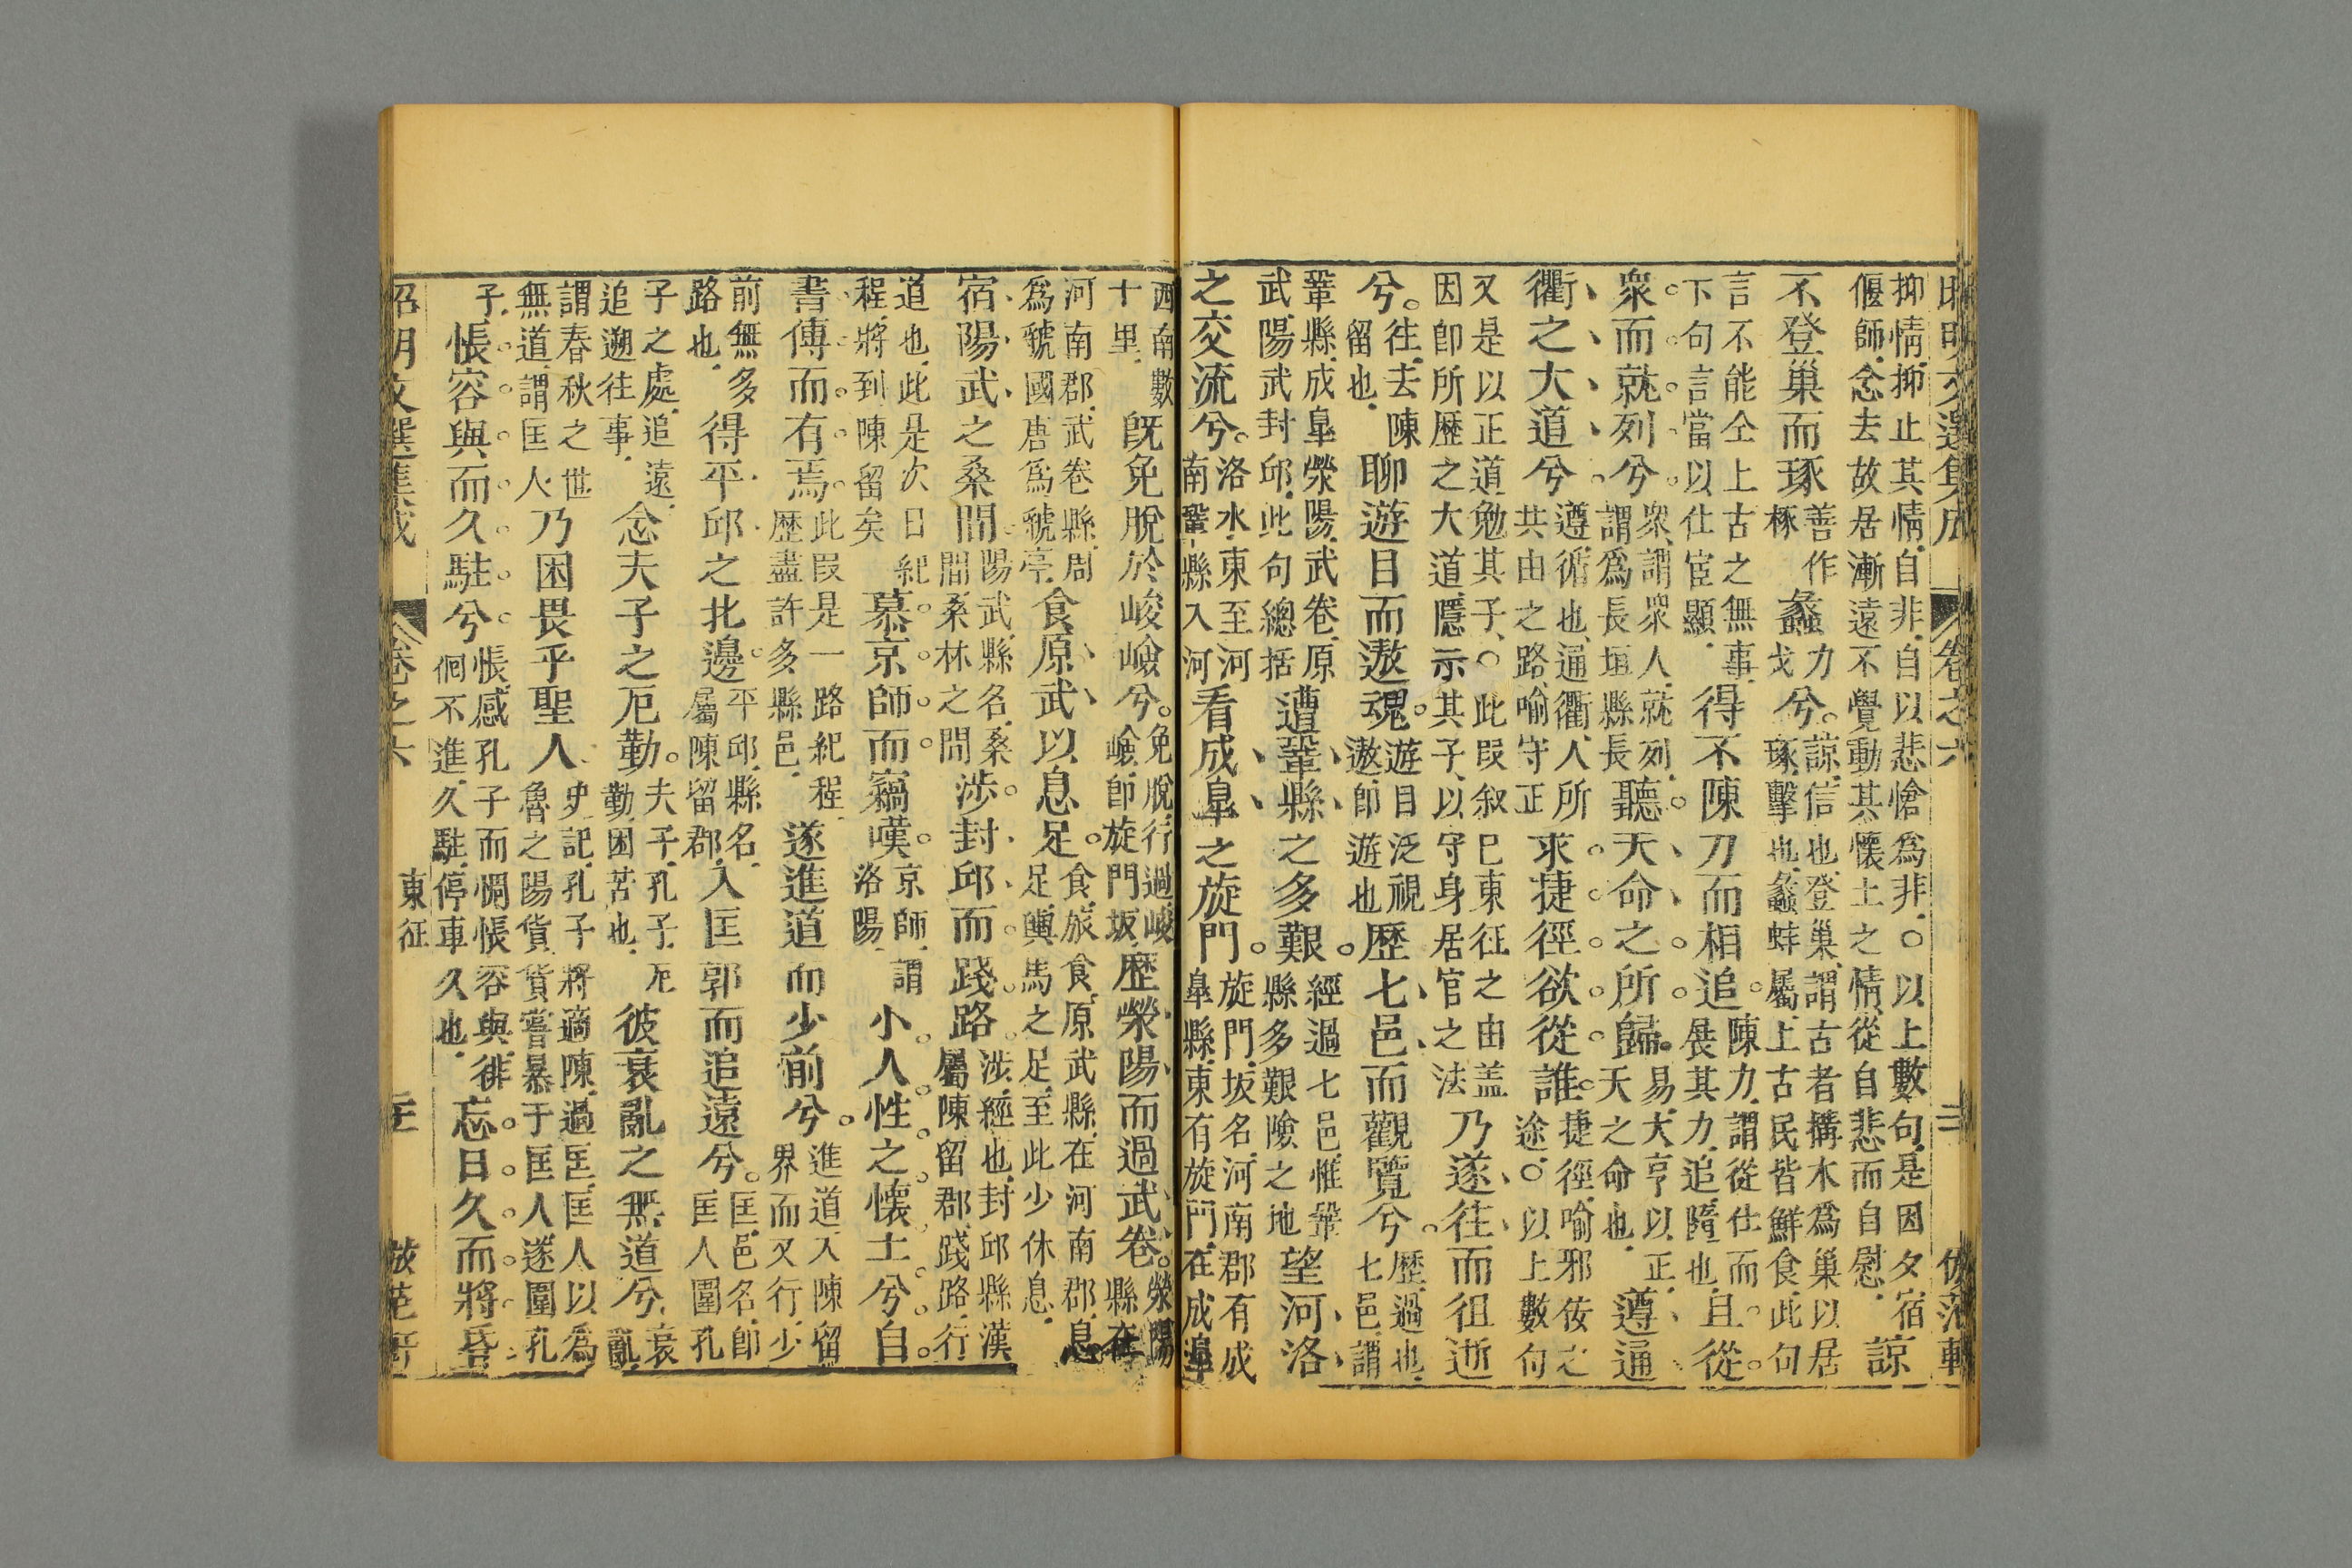 昭明文選集成 卷之六 倣范軒
抑情抑止其情自非自以悲愴為非○以上數句是因夕宿
偃師念去故居漸遠不覺動其懷土之情從自悲而自慰 諒
不登巢而琢 善作椓 蠡 力戈 兮。諒信也登巢謂古者搆木為巢以居琢擊也蠡蚌屬上古民皆鮮食此句
言不能仝上古之無事下句言當以仕宦顯 得不陳力而相追。陳力謂從仕而展其力追隨也 且從
衆而就列兮。衆謂衆人就列謂為長垣縣長 聽天命之所歸。易大亨以正天之命也 遵通
衢之大道兮。遵循也通衢人所共由之路喻守正 求捷徑欲從誰。捷徑喻邪佞之途○以上數句
又是以正道勉其子○此叚叙巳東征之由盖因卽所歷之大道隱示其子以守身居官之法 乃遂往而徂逝
兮。往去陳留也 聊遊目而遨魂。遊目泛視遨卽遊也 歷七邑而觀覽兮。歷過也七邑謂
鞏縣成臯滎陽武卷原武陽武封邱此句總括 遭鞏縣之多艱。經過七邑惟鞏縣多艱險之地 望河洛
之交流兮。洛水東至河南鞏縣入河 看成臯之旋門。旋門坂名河南郡有成臯縣東有旋門在成臯
西南數十里 旣免脫於峻嶮兮。免脫行過峻嶮卽旋門坂 歷滎陽而過武卷。滎陽縣在
河南郡武卷縣周為虢國唐為虢亭 食原武以息足。食旅食原武縣在河南郡息足輿馬之足至此少休息
宿陽武之桑間。陽武縣名桑間桑林之間 涉封邱而踐路。涉經也封邱縣漢屬陳留郡踐路行
道也此是次日紀程將到陳留矣 慕京師而竊嘆。京師謂洛陽 小人性之懷土兮。自
書傳而有焉。此叚是一路紀程歷盡許多縣邑 遂進道而少前兮。進道入陳留界而又行少
前無多路也 得平邱之北邊。平邱縣名屬陳留郡 入匡郭而追遠兮。匡邑名卽匡人圍孔
子之處追遠追遡往事 念夫子之厄勤。夫子孔子厄勤困苦也 彼衰亂之無道兮 衰亂
謂春秋之世無道謂匡人 乃困畏乎聖人 史記孔子將適陳過匡匡人以為魯之陽貨貨嘗暴于匡人遂圍孔
子 悵容與而久駐兮。悵感孔子而惆悵容與徘徊不進久駐停車久也 忘日久而將昏
昭明文選集成 卷之六 東征 倣范軒